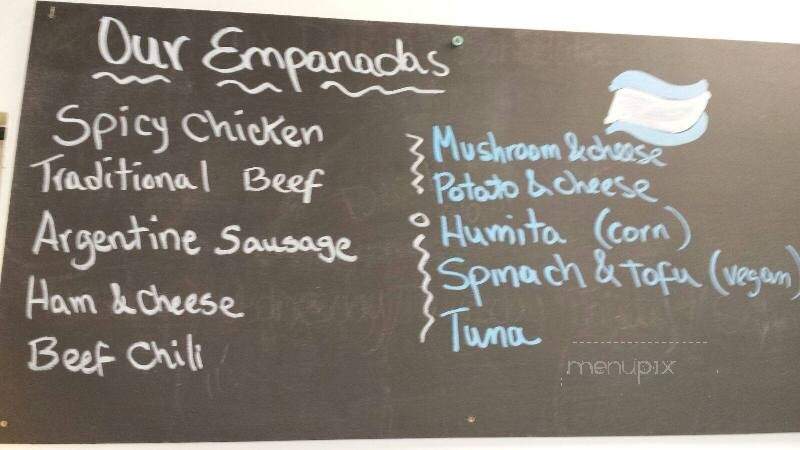 Our Empanadas
Spicy Chicken
Traditional Beef
Argentine Sausage
Ham & Cheese
Beef Chili
Mushroom & chease
Potato & cheese
Humita (corn)
Spinach & Tofu (vegan)
Tuna
menupix